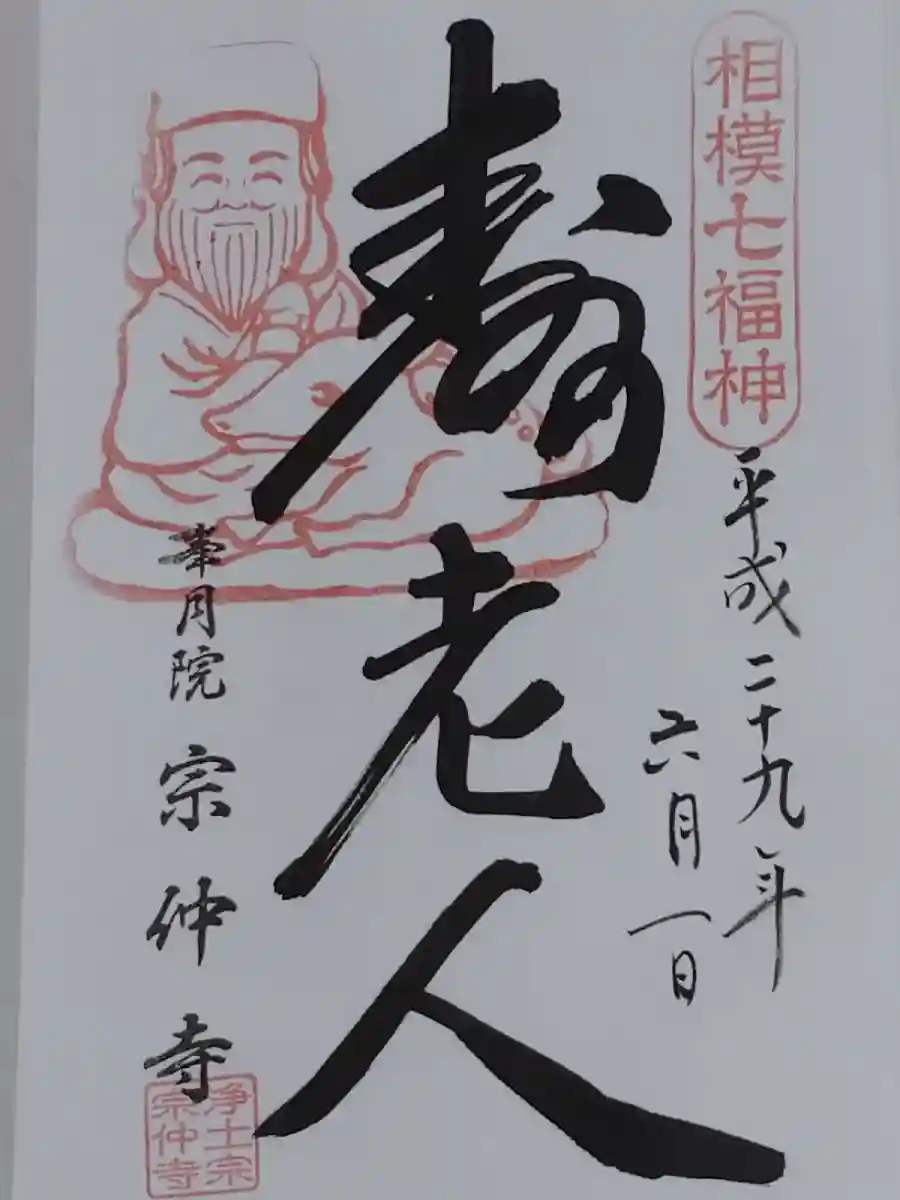 相模七福神
平成二十九年
六月一日
寿老人
峯月院 宗仲寺
浄土宗
宗仲寺